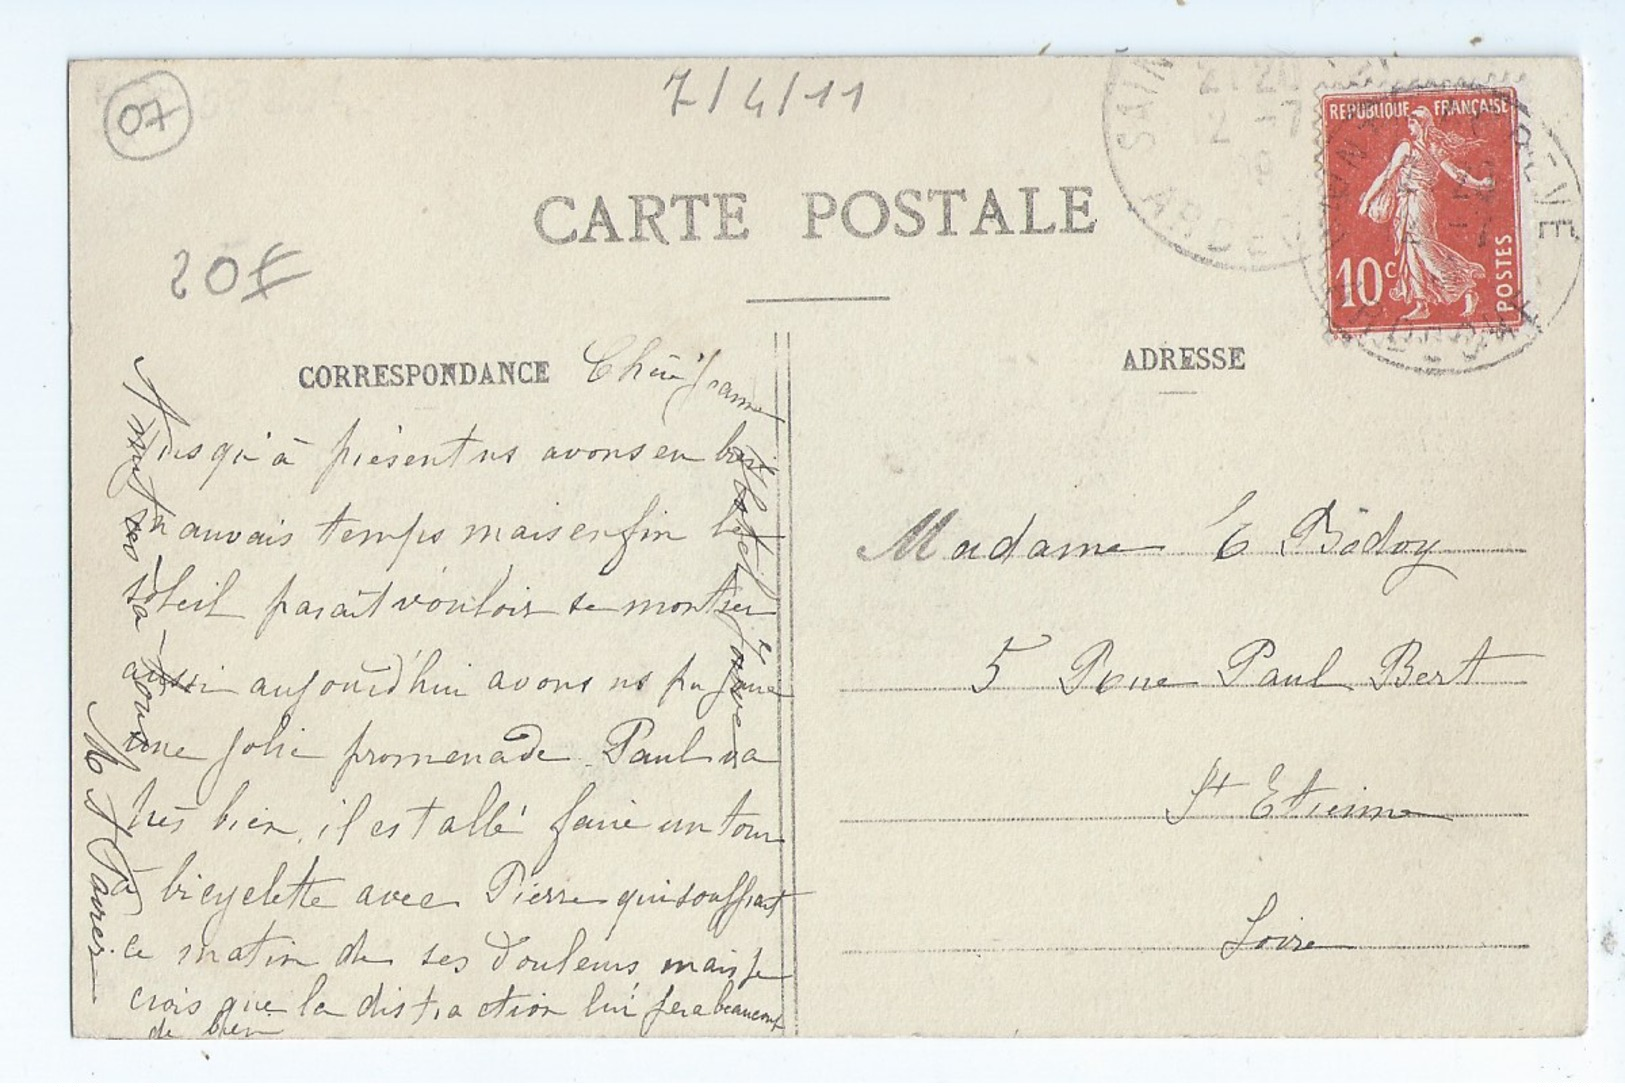 07
7/4/11
CARTE POSTALE
20€
REPUBLIQUE FRANÇAISE
10c
POSTES
ARDECHE
CORRESPONDANCE
ADRESSE
Jusqu'à présent ns avons eu bien
mauvais temps mais enfin le
soleil parait vouloir se montrer
aussi aujourd'hui avons ns pu faire
une jolie promenade. Paul va
très bien, il est allé faire un tour
à bicyclette avec Pierre qui souffrait
ce matin de ses douleurs mais je
crois que la distraction lui fera beaucoup
de bien
Madame E Bédoy
5 Rue Paul Bert
St Etienne
Loire